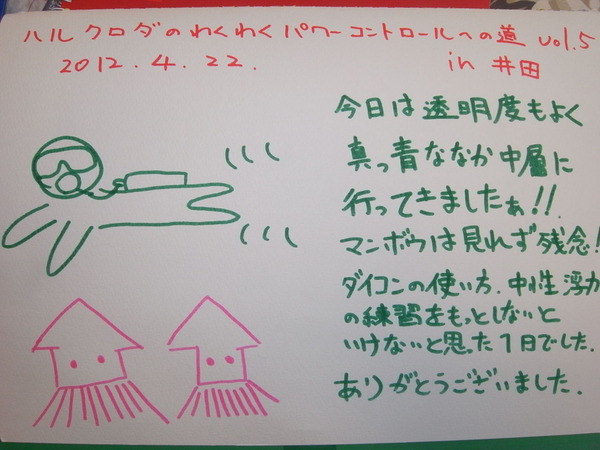 ハルクロダのわくわくパワーコントロールへの道 vol.5
2012.4.22. in 井田
今日は透明度もよく
真っ青ななか中層に
行ってきましたぁ!!
マンボウは見れず残念!
ダイコンの使い方、中性浮力
の練習をもっとしないと
いけないと思った1日でした.
ありがとうございました.